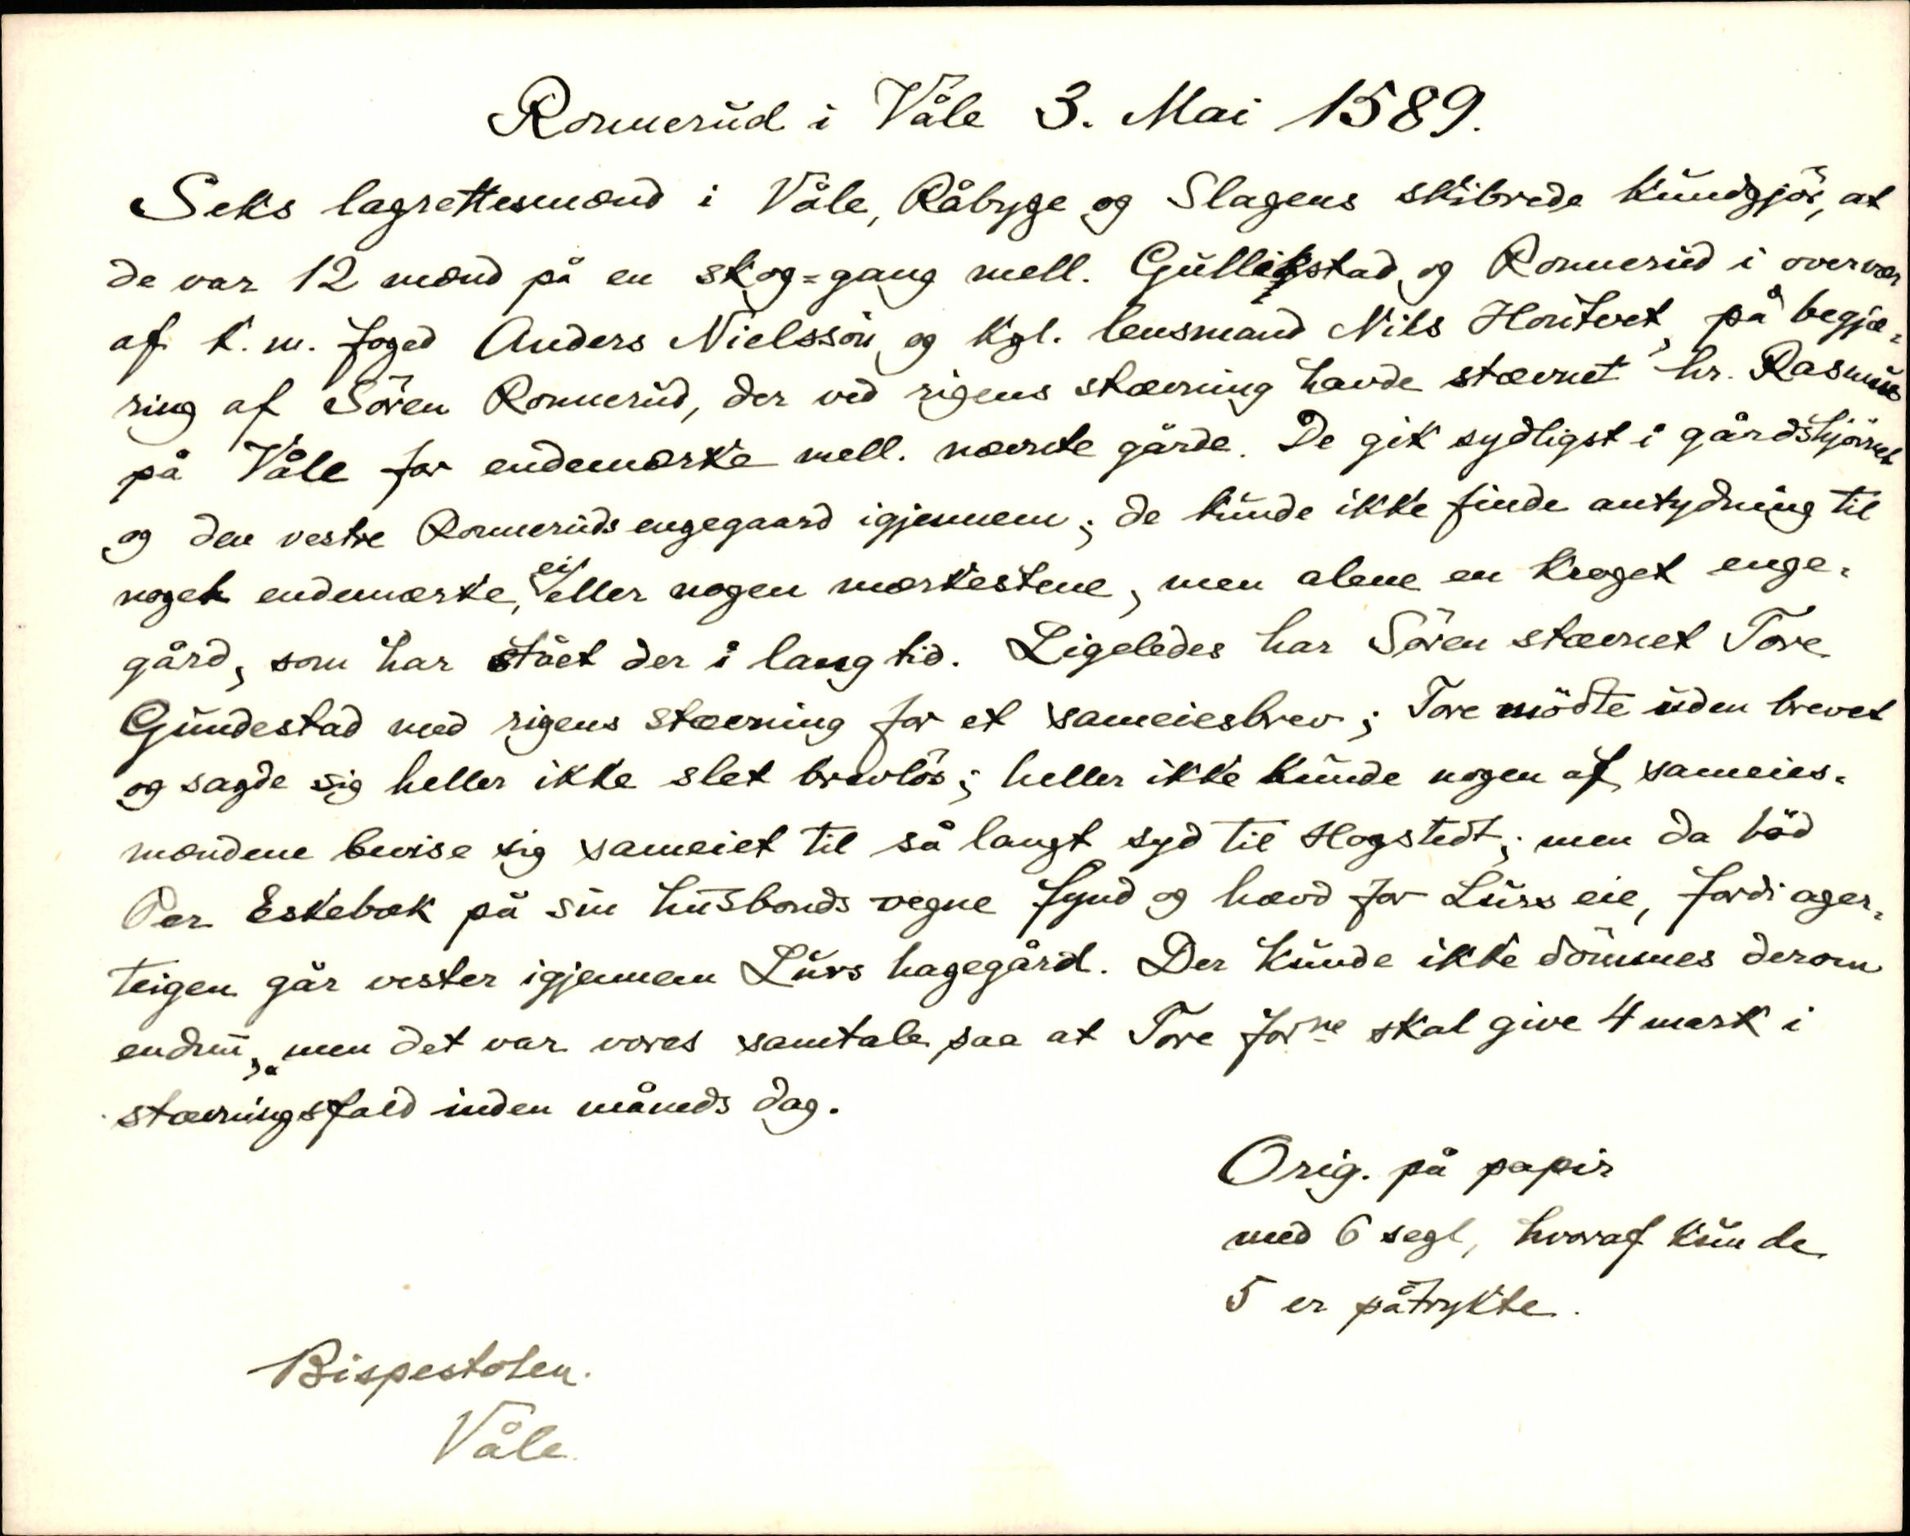 Ronnerud i Våle 3. Mai 1589.
Seks lagrettesmænd i Våle, Råbyge og Slagens skibrede kundgjör, at
de var 12 mænd på en skog=gang mell. Gullikstad og Ronnerud i overvær
af k. m. foged Anders Nielssön og kgl. lensmand Nils Hontvet, på begjæ=
ring af Sören Ronnerud, der ved rigens stævning havde stævnet hr. Rasmus
på Våle for endemærke mell. nævnte gårde. De gik sydligst i gårdshjörnet
og den vestre Ronneruds engegaard igjennem; de kunde ikke finde antydning til
noget endemærke, ei eller nogen mærkestene, men alene en kroget enge=
gård, som har stået der i lang tid. Ligeledes har Sören stævnet Tore
Gundestad med rigens stævning for et sameiesbrev; Tore mödte uden brevet
og sagde sig heller ikke slet brevlös; heller ikke kunde nogen af sameies=
mændene bevise sig sameiet til så langt syd til Hogstedt; men da böd
Per Eskebæk på sin husbonds vegne fynd og hævd for Lurs eie, fordi ager=
teigen går vester igjennem Lurs hagegård. Der kunde ikke dömmes derom
endnu, "men det var vores samtale saa at Tore forne skal give 4 mark i
stævningsfald inden måneds dag.
Orig. på papir
med 6 segl, hvoraf kun de
5 er påtrykte.
Bispestolen.
Våle